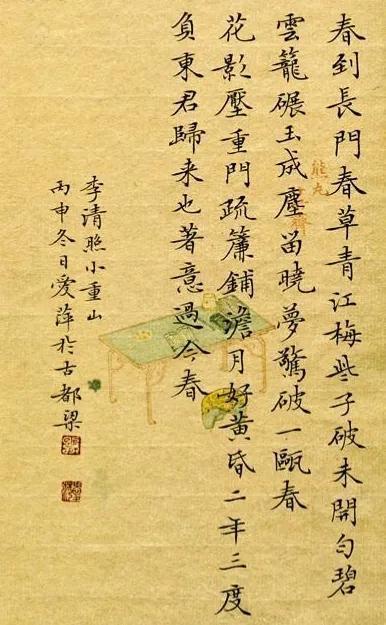 春到長門春草青江梅些子破未開勻碧
雲籠碾玉成塵留曉夢驚破一甌春
花影壓重門疏簾鋪澹月好黃昏二年三度
負東君歸来也著意過今春
李清照小重山
丙申冬日愛萍於古都梁
熊丸